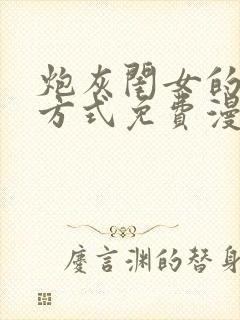 炮灰闺女的
方式免费漫
慶言渊的替身